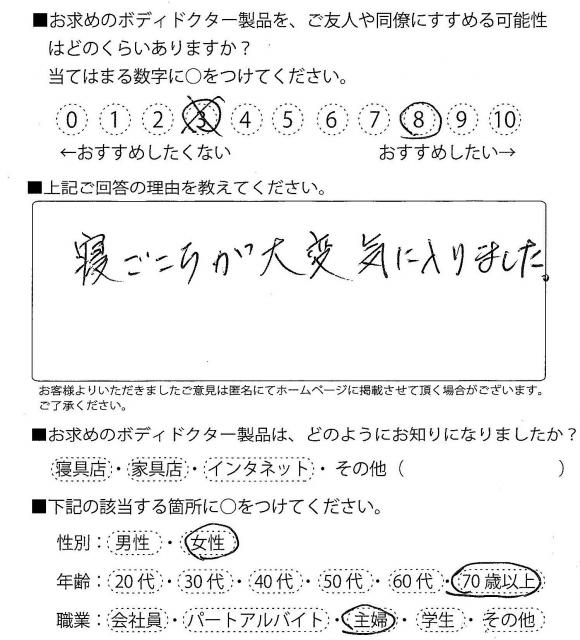 ■お求めのボディドクター製品を、ご友人や同僚にすすめる可能性
はどのくらいありますか？
当てはまる数字に○をつけてください。
0 1 2 3 4 5 6 7 8 9 10
←おすすめしたくない おすすめしたい→
■上記ご回答の理由を教えてください。
寝ごこちが大変気に入りました。
お客様よりいただきましたご意見は匿名にてホームページに掲載させて頂く場合がございます。
ご了承ください。
■お求めのボディドクター製品は、どのようにお知りになりましたか？
寝具店・家具店・インタネット・その他（ ）
■下記の該当する箇所に○をつけてください。
性別：男性・女性
年齢：20代・30代・40代・50代・60代・70歳以上
職業：会社員・パートアルバイト・主婦・学生・その他